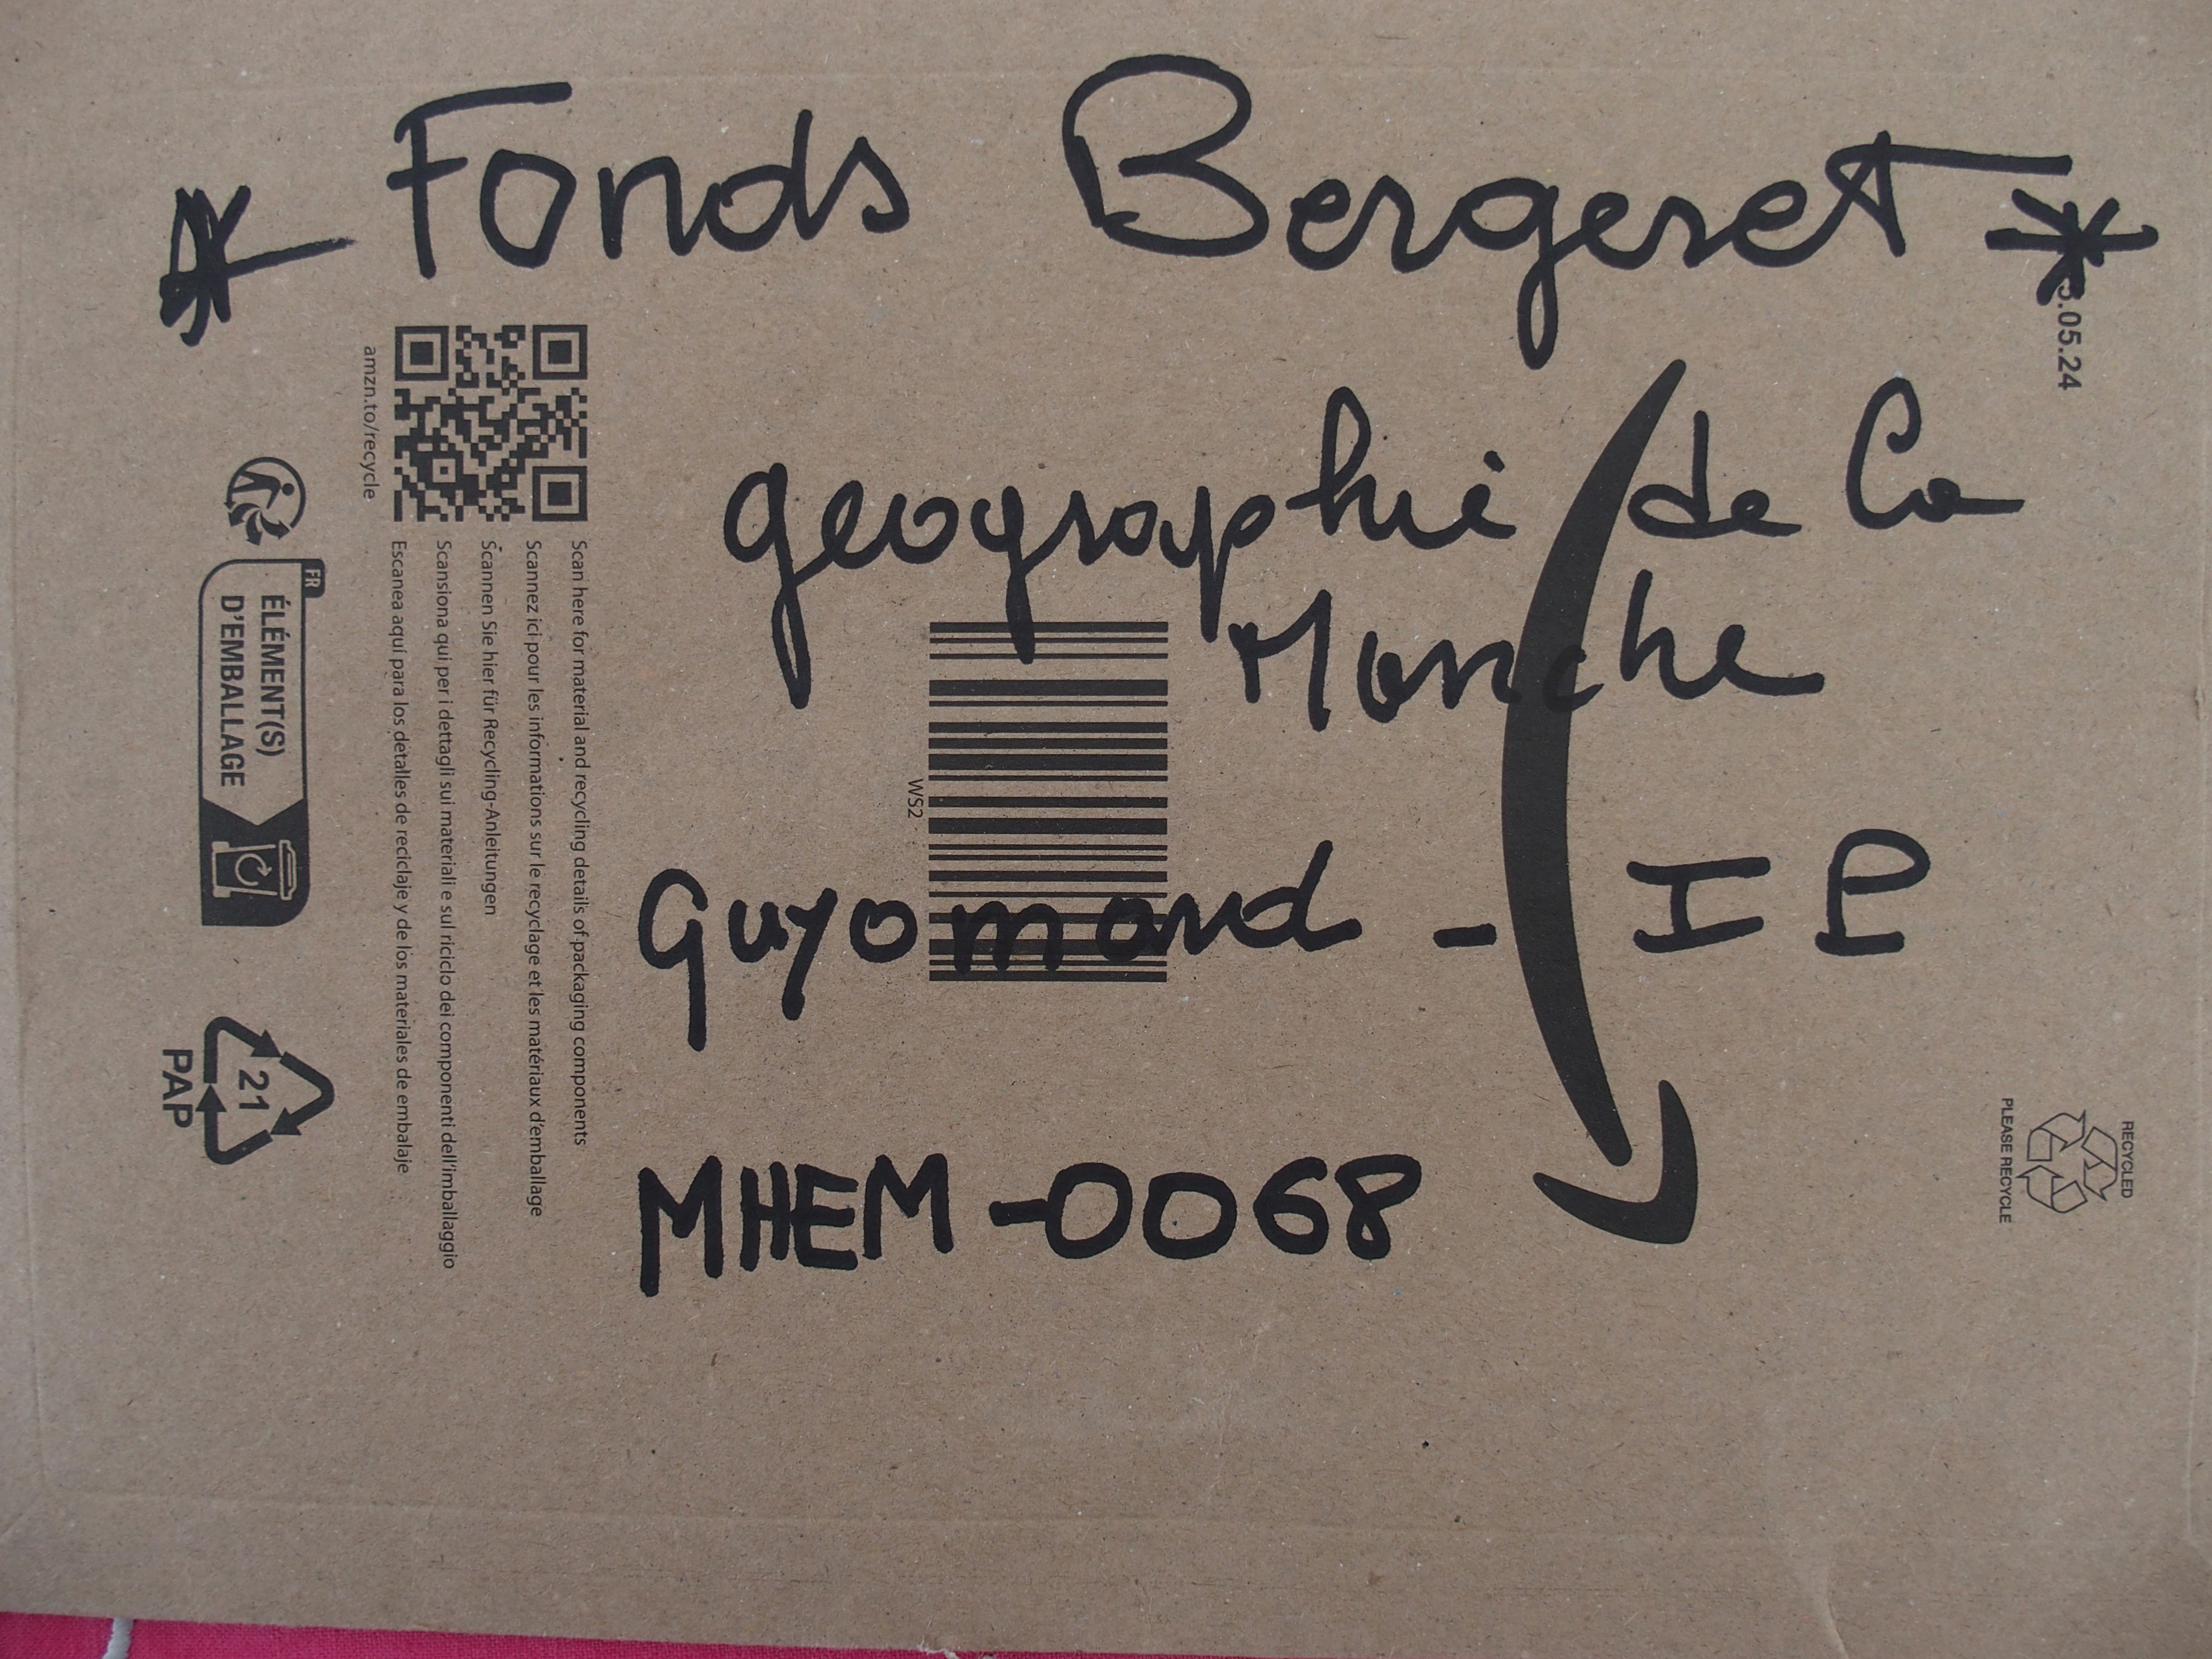 * Fonds Bergeret *
geographie de la
Manche
Guyomard - IP
MHEM-0068
.05.24
amzn.to/recycle
Scan here for material and recycling details of packaging components
Scannez ici pour les informations sur le recyclage et les matériaux d'emballage
Scannen Sie hier für Recycling-Anleitungen
Scansiona qui per i dettagli sui materiali e sul riciclo dei componenti dell'imballaggio
Escanea aquí para los detalles de reciclaje y de los materiales de embalaje
FR
ÉLÉMENT(S)
D'EMBALLAGE
21
PAP
WS2
RECYCLED
PLEASE RECYCLE